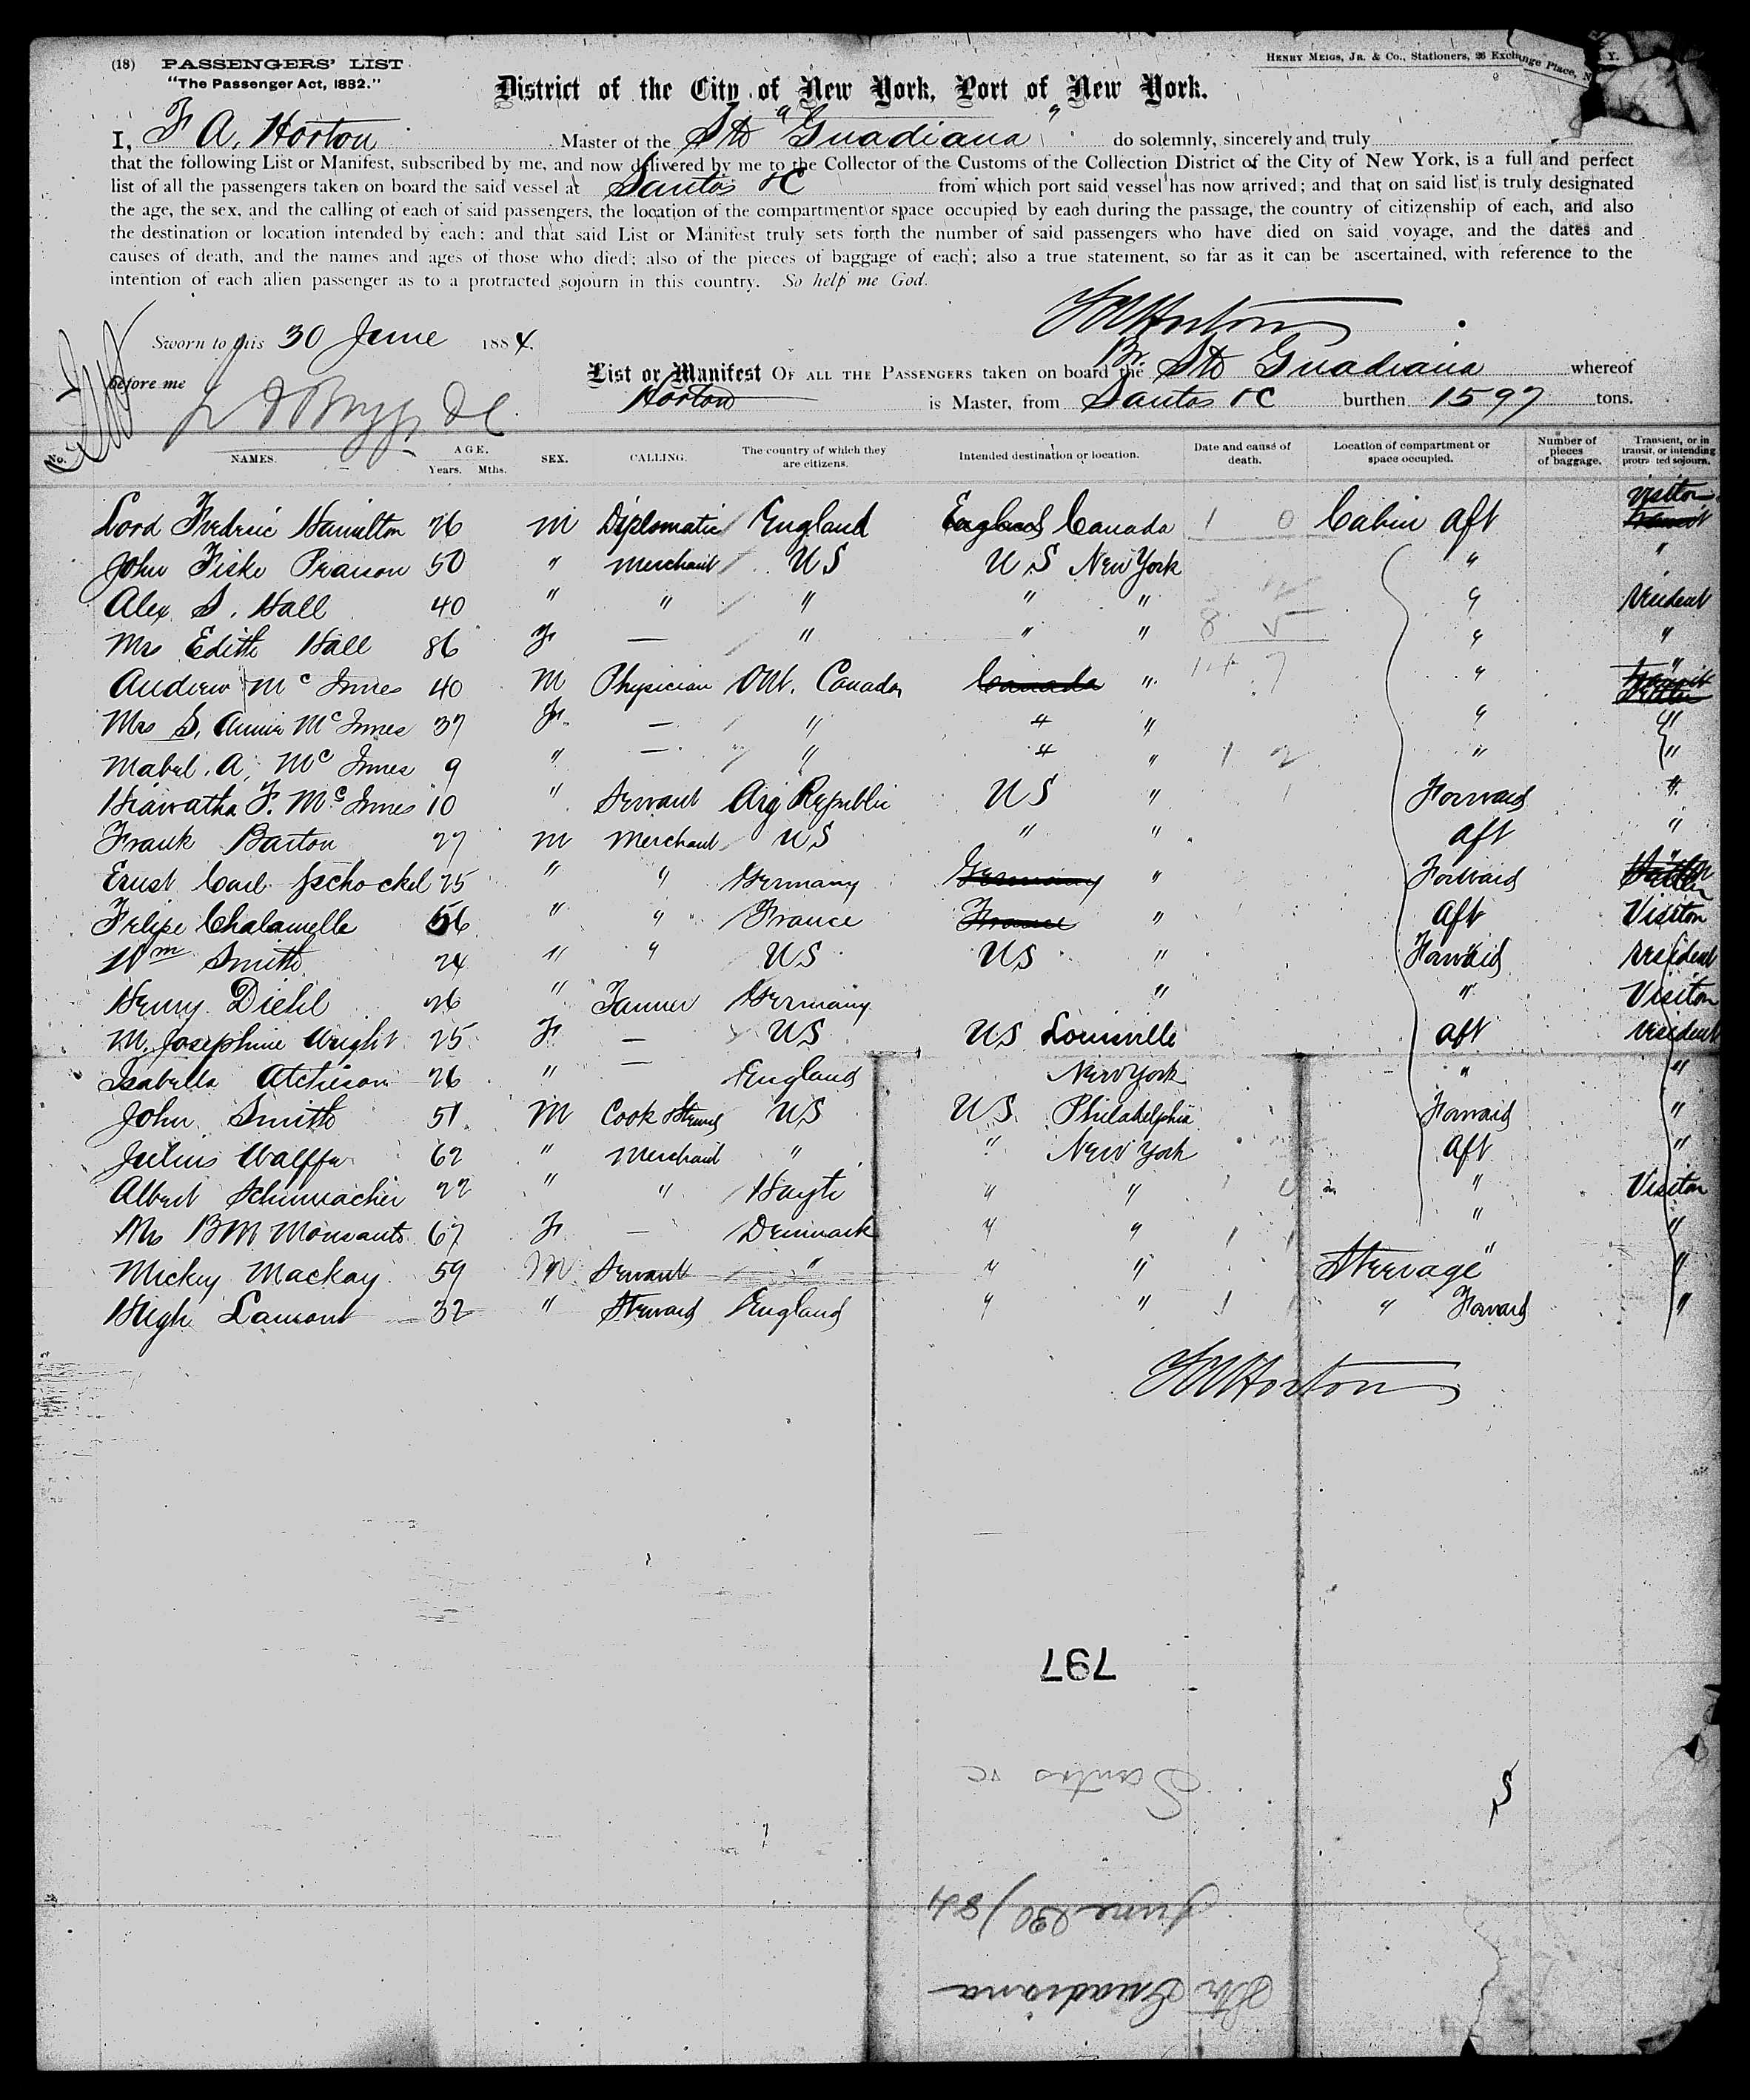 (18) PASSENGERS' LIST
"The Passenger Act, 1882."
HENRY MEIGS, JR. & CO., Stationers, 26 Exchange Place, N. Y.
District of the City of New York, Port of New York.
I, F A. Horton Master of the Str "Guadiana" do solemnly, sincerely and truly
that the following List or Manifest, subscribed by me, and now delivered by me to the Collector of the Customs of the Collection District of the City of New York, is a full and perfect
list of all the passengers taken on board the said vessel at Santos &C from which port said vessel has now arrived; and that on said list is truly designated
the age, the sex, and the calling of each of said passengers, the location of the compartment or space occupied by each during the passage, the country of citizenship of each, and also
the destination or location intended by each: and that said List or Manifest truly sets forth the number of said passengers who have died on said voyage, and the dates and
causes of death, and the names and ages of those who died; also of the pieces of baggage of each; also a true statement, so far as it can be ascertained, with reference to the
intention of each alien passenger as to a protracted sojourn in this country. So help me God.
FAHorton
Sworn to this 30 June 1884.
before me
List or Manifest OF ALL THE PASSENGERS taken on board the Br. Str Guadiana whereof
Horton is Master, from Santos &C burthen 1597 tons.
No. NAMES. AGE. Years. Mths. SEX. CALLING. The country of which they are citizens. Intended destination or location. Date and cause of death. Location of compartment or space occupied. Number of pieces of baggage. Transient, or in transit, or intending protracted sojourn.
Lord Fredric Hamilton 26 M Diplomatic England England Canada Cabin Aft Visitor
John Fiske Pearson 50 " Merchant US US New York " "
Alex. S. Hall 40 " " " " " " Resident
Mrs Edith Hall 36 F — " " " " "
Andrew McInnes 40 M Physician Ont. Canada Canada " "
Mrs S. Annie McInnes 37 F — " " " " "
Mabel. A. McInnes 9 " — " " " " "
Hiawatha F. McInnes 10 " Servant Arg Republic US " Forward "
Frank Barton 27 M Merchant US " " Aft "
Ernst Carl Zschockel 25 " " Germany Germany " Forward
Felipe Chalamelle 56 " " France France " Aft Visitor
Wm Smith 24 " " US US " Forward Resident
Henry Diehl 26 " Tanner Germany " " Visitor
M. Josephine Wright 25 F — US US Louisville Aft Resident
Isabella Atchison 26 " — England New York " "
John Smith 51 M Cook US US Philadelphia Forward "
Julius 62 " Merchant " " New York Aft "
Albert Schumacher 22 " " Hayti " " " Visitor
Mrs BM Monsanto 67 F — Denmark " " " "
Mickey Mackay 59 M Servant " " " Steerage "
Hugh Lamont 32 " Steward England " " " Forward "
FAHorton
797
Santos &c
June 30/84
Str Guadiana